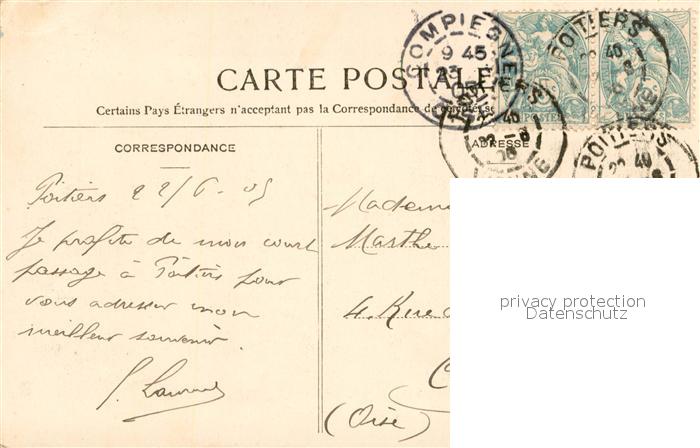 CARTE POSTALE
Certains Pays Étrangers n'acceptant pas la Correspondance de ce
COMPIEGNE
9 45
23
OISE
POITIERS
40
POITIERS
22 40
VIENNE
POITIERS
22 40
POSTES
CORRESPONDANCE
ADRESSE
Poitiers 22/6.05
Je profite de mon court
passage à Poitiers pour
vous adresser mon
meilleur souvenir.
Madame
Marthe
4. Rue
(Oise)
privacy protection
Datenschutz